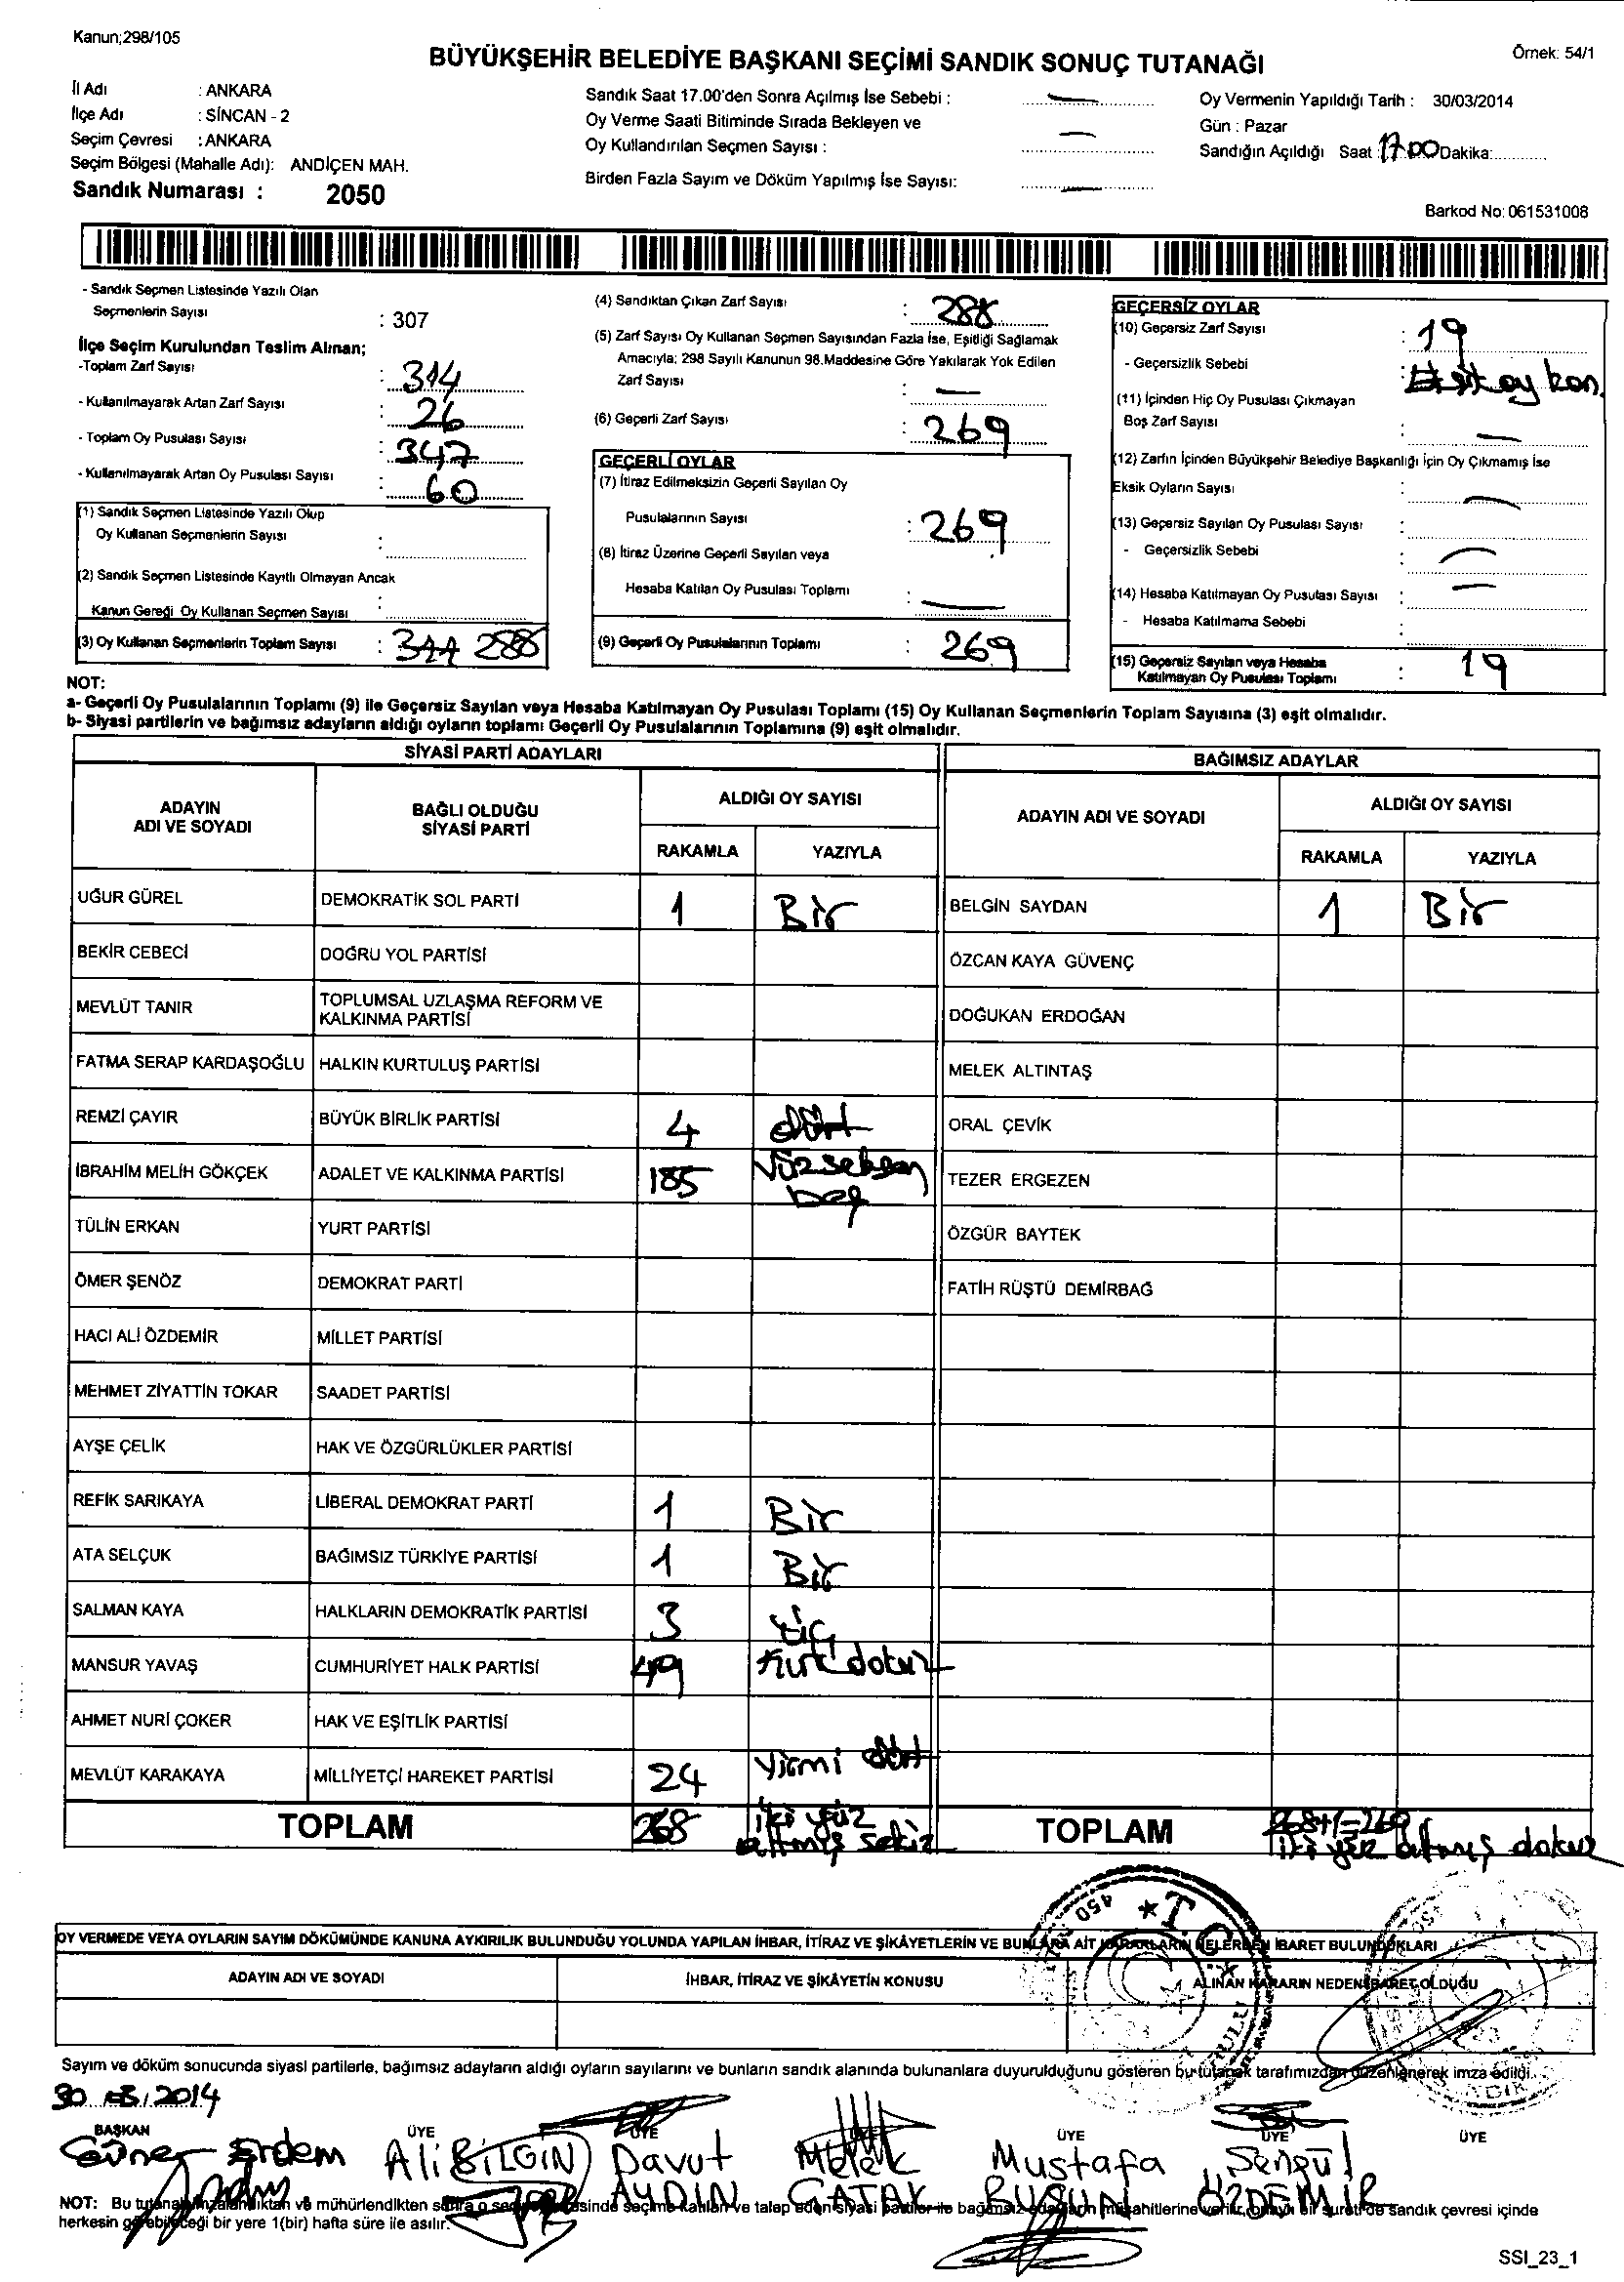 Kanun;298/105
Örnek: 54/1
BÜYÜKŞEHİR BELEDİYE BAŞKANI SEÇİMİ SANDIK SONUÇ TUTANAĞI
İl Adı : ANKARA
İlçe Adı : SİNCAN - 2
Seçim Çevresi : ANKARA
Seçim Bölgesi (Mahalle Adı): ANDİÇEN MAH.
Sandık Numarası : 2050
Sandık Saat 17.00'den Sonra Açılmış İse Sebebi : —
Oy Verme Saati Bitiminde Sırada Bekleyen ve
Oy Kullandırılan Seçmen Sayısı : —
Birden Fazla Sayım ve Döküm Yapılmış İse Sayısı: —
Oy Vermenin Yapıldığı Tarih : 30/03/2014
Gün : Pazar
Sandığın Açıldığı Saat 17.00 Dakika:
Barkod No: 061531008
- Sandık Seçmen Listesinde Yazılı Olan
Seçmenlerin Sayısı : 307
İlçe Seçim Kurulundan Teslim Alınan;
-Toplam Zarf Sayısı : 314
- Kullanılmayarak Artan Zarf Sayısı : 26
- Toplam Oy Pusulası Sayısı : 347
- Kullanılmayarak Artan Oy Pusulası Sayısı : 60
(1) Sandık Seçmen Listesinde Yazılı Olup
Oy Kullanan Seçmenlerin Sayısı :
(2) Sandık Seçmen Listesinde Kayıtlı Olmayan Ancak
Kanun Gereği Oy Kullanan Seçmen Sayısı :
(3) Oy Kullanan Seçmenlerin Toplam Sayısı : 288
(4) Sandıktan Çıkan Zarf Sayısı : 288
(5) Zarf Sayısı Oy Kullanan Seçmen Sayısından Fazla İse, Eşitliği Sağlamak
Amacıyla; 298 Sayılı Kanunun 98.Maddesine Göre Yakılarak Yok Edilen
Zarf Sayısı : —
(6) Geçerli Zarf Sayısı : 269
GEÇERLİ OYLAR
(7) İtiraz Edilmeksizin Geçerli Sayılan Oy
Pusulalarının Sayısı : 269
(8) İtiraz Üzerine Geçerli Sayılan veya
Hesaba Katılan Oy Pusulası Toplamı : —
(9) Geçerli Oy Pusulalarının Toplamı : 269
GEÇERSİZ OYLAR
(10) Geçersiz Zarf Sayısı : 19
- Geçersizlik Sebebi : oy
(11) İçinden Hiç Oy Pusulası Çıkmayan
Boş Zarf Sayısı : —
(12) Zarfın İçinden Büyükşehir Belediye Başkanlığı İçin Oy Çıkmamış İse
Eksik Oyların Sayısı : —
(13) Geçersiz Sayılan Oy Pusulası Sayısı :
- Geçersizlik Sebebi : —
(14) Hesaba Katılmayan Oy Pusulası Sayısı : —
- Hesaba Katılmama Sebebi :
(15) Geçersiz Sayılan veya Hesaba
Katılmayan Oy Pusulası Toplamı : 19
NOT:
a- Geçerli Oy Pusulalarının Toplamı (9) ile Geçersiz Sayılan veya Hesaba Katılmayan Oy Pusulası Toplamı (15) Oy Kullanan Seçmenlerin Toplam Sayısına (3) eşit olmalıdır.
b- Siyasi partilerin ve bağımsız adayların aldığı oyların toplamı Geçerli Oy Pusulalarının Toplamına (9) eşit olmalıdır.
SİYASİ PARTİ ADAYLARI
ADAYIN ADI VE SOYADI BAĞLI OLDUĞU SİYASİ PARTİ ALDIĞI OY SAYISI
RAKAMLA YAZIYLA
UĞUR GÜREL DEMOKRATİK SOL PARTİ 1 Bir
BEKİR CEBECİ DOĞRU YOL PARTİSİ
MEVLÜT TANIR TOPLUMSAL UZLAŞMA REFORM VE
KALKINMA PARTİSİ
FATMA SERAP KARDAŞOĞLU HALKIN KURTULUŞ PARTİSİ
REMZİ ÇAYIR BÜYÜK BİRLİK PARTİSİ 4 dört
İBRAHİM MELİH GÖKÇEK ADALET VE KALKINMA PARTİSİ 185 Yüzseksen
beş
TÜLİN ERKAN YURT PARTİSİ
ÖMER ŞENÖZ DEMOKRAT PARTİ
HACI ALİ ÖZDEMİR MİLLET PARTİSİ
MEHMET ZİYATTİN TOKAR SAADET PARTİSİ
AYŞE ÇELİK HAK VE ÖZGÜRLÜKLER PARTİSİ
REFİK SARIKAYA LİBERAL DEMOKRAT PARTİ 1 Bir
ATA SELÇUK BAĞIMSIZ TÜRKİYE PARTİSİ 1 Bir
SALMAN KAYA HALKLARIN DEMOKRATİK PARTİSİ 3 üç
MANSUR YAVAŞ CUMHURİYET HALK PARTİSİ 49 Kırk dokuz
AHMET NURİ ÇOKER HAK VE EŞİTLİK PARTİSİ
MEVLÜT KARAKAYA MİLLİYETÇİ HAREKET PARTİSİ 24 Yirmi dört
TOPLAM 268 iki yüz
altmış sekiz
BAĞIMSIZ ADAYLAR
ADAYIN ADI VE SOYADI ALDIĞI OY SAYISI
RAKAMLA YAZIYLA
BELGİN SAYDAN 1 Bir
ÖZCAN KAYA GÜVENÇ
DOĞUKAN ERDOĞAN
MELEK ALTINTAŞ
ORAL ÇEVİK
TEZER ERGEZEN
ÖZGÜR BAYTEK
FATİH RÜŞTÜ DEMİRBAĞ
TOPLAM 268+1=269
iki yüz altmış dokuz
OY VERMEDE VEYA OYLARIN SAYIM DÖKÜMÜNDE KANUNA AYKIRILIK BULUNDUĞU YOLUNDA YAPILAN İHBAR, İTİRAZ VE ŞİKÂYETLERİN VE BUNLARA AİT KARARLARIN NELERDEN İBARET BULUNDUKLARI
ADAYIN ADI VE SOYADI İHBAR, İTİRAZ VE ŞİKÂYETİN KONUSU ALINAN KARARIN NEDEN İBARET OLDUĞU
T.C.
Sayım ve döküm sonucunda siyasi partilerle, bağımsız adayların aldığı oyların sayılarını ve bunların sandık alanında bulunanlara duyurulduğunu gösteren bu tutanak tarafımızdan düzenlenerek imza edildi.
30.03.2014
BAŞKAN ÜYE ÜYE ÜYE ÜYE ÜYE
Güner Erdem Ali BİLGİN Davut Melek Mustafa Şengül
AYDIN ÇATAK ÖZDEMİR
NOT: Bu tutanak imzalandıktan ve mühürlendikten sonra o seçim çevresinde seçime katılan ve talep eden siyasi partiler ile bağımsız adayların müşahitlerine verilir, onaylı bir sureti de sandık çevresi içinde
herkesin görebileceği bir yere 1(bir) hafta süre ile asılır.
SSI_23_1